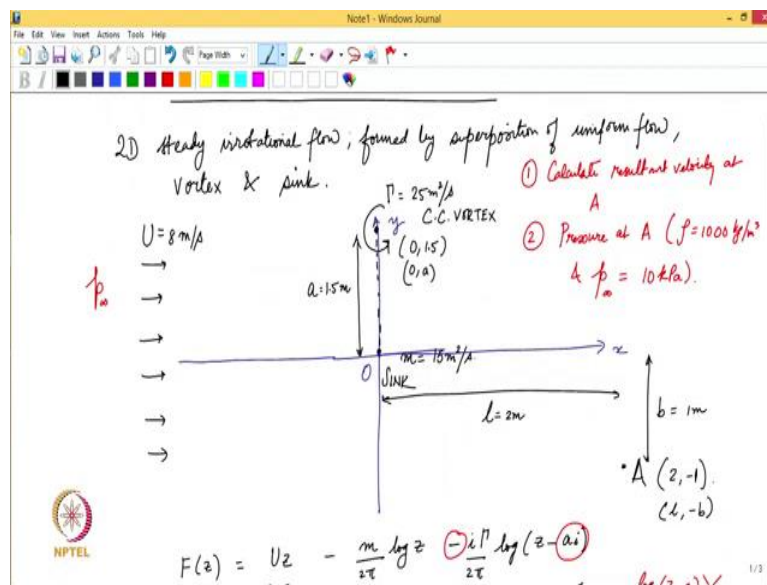 Note1 - Windows Journal
File Edit View Insert Actions Tools Help
Page Width
B I
2D steady irrotational flow; formed by superposition of uniform flow,
vortex & sink.
① Calculate resultant velocity at
A
② Pressure at A (ρ=1000 kg/m³
& p∞ = 10 kPa).
Γ = 25 m²/s
y C.C. VORTEX
U = 8 m/s
(0, 1.5)
(0, a)
a = 1.5m
p∞
m = 15 m²/s
x
O
SINK
l = 2m
b = 1m
A (2, -1).
(l, -b)
NPTEL
F(z) = Uz - m/2π log z - iΓ/2π log (z - ai)
1/3